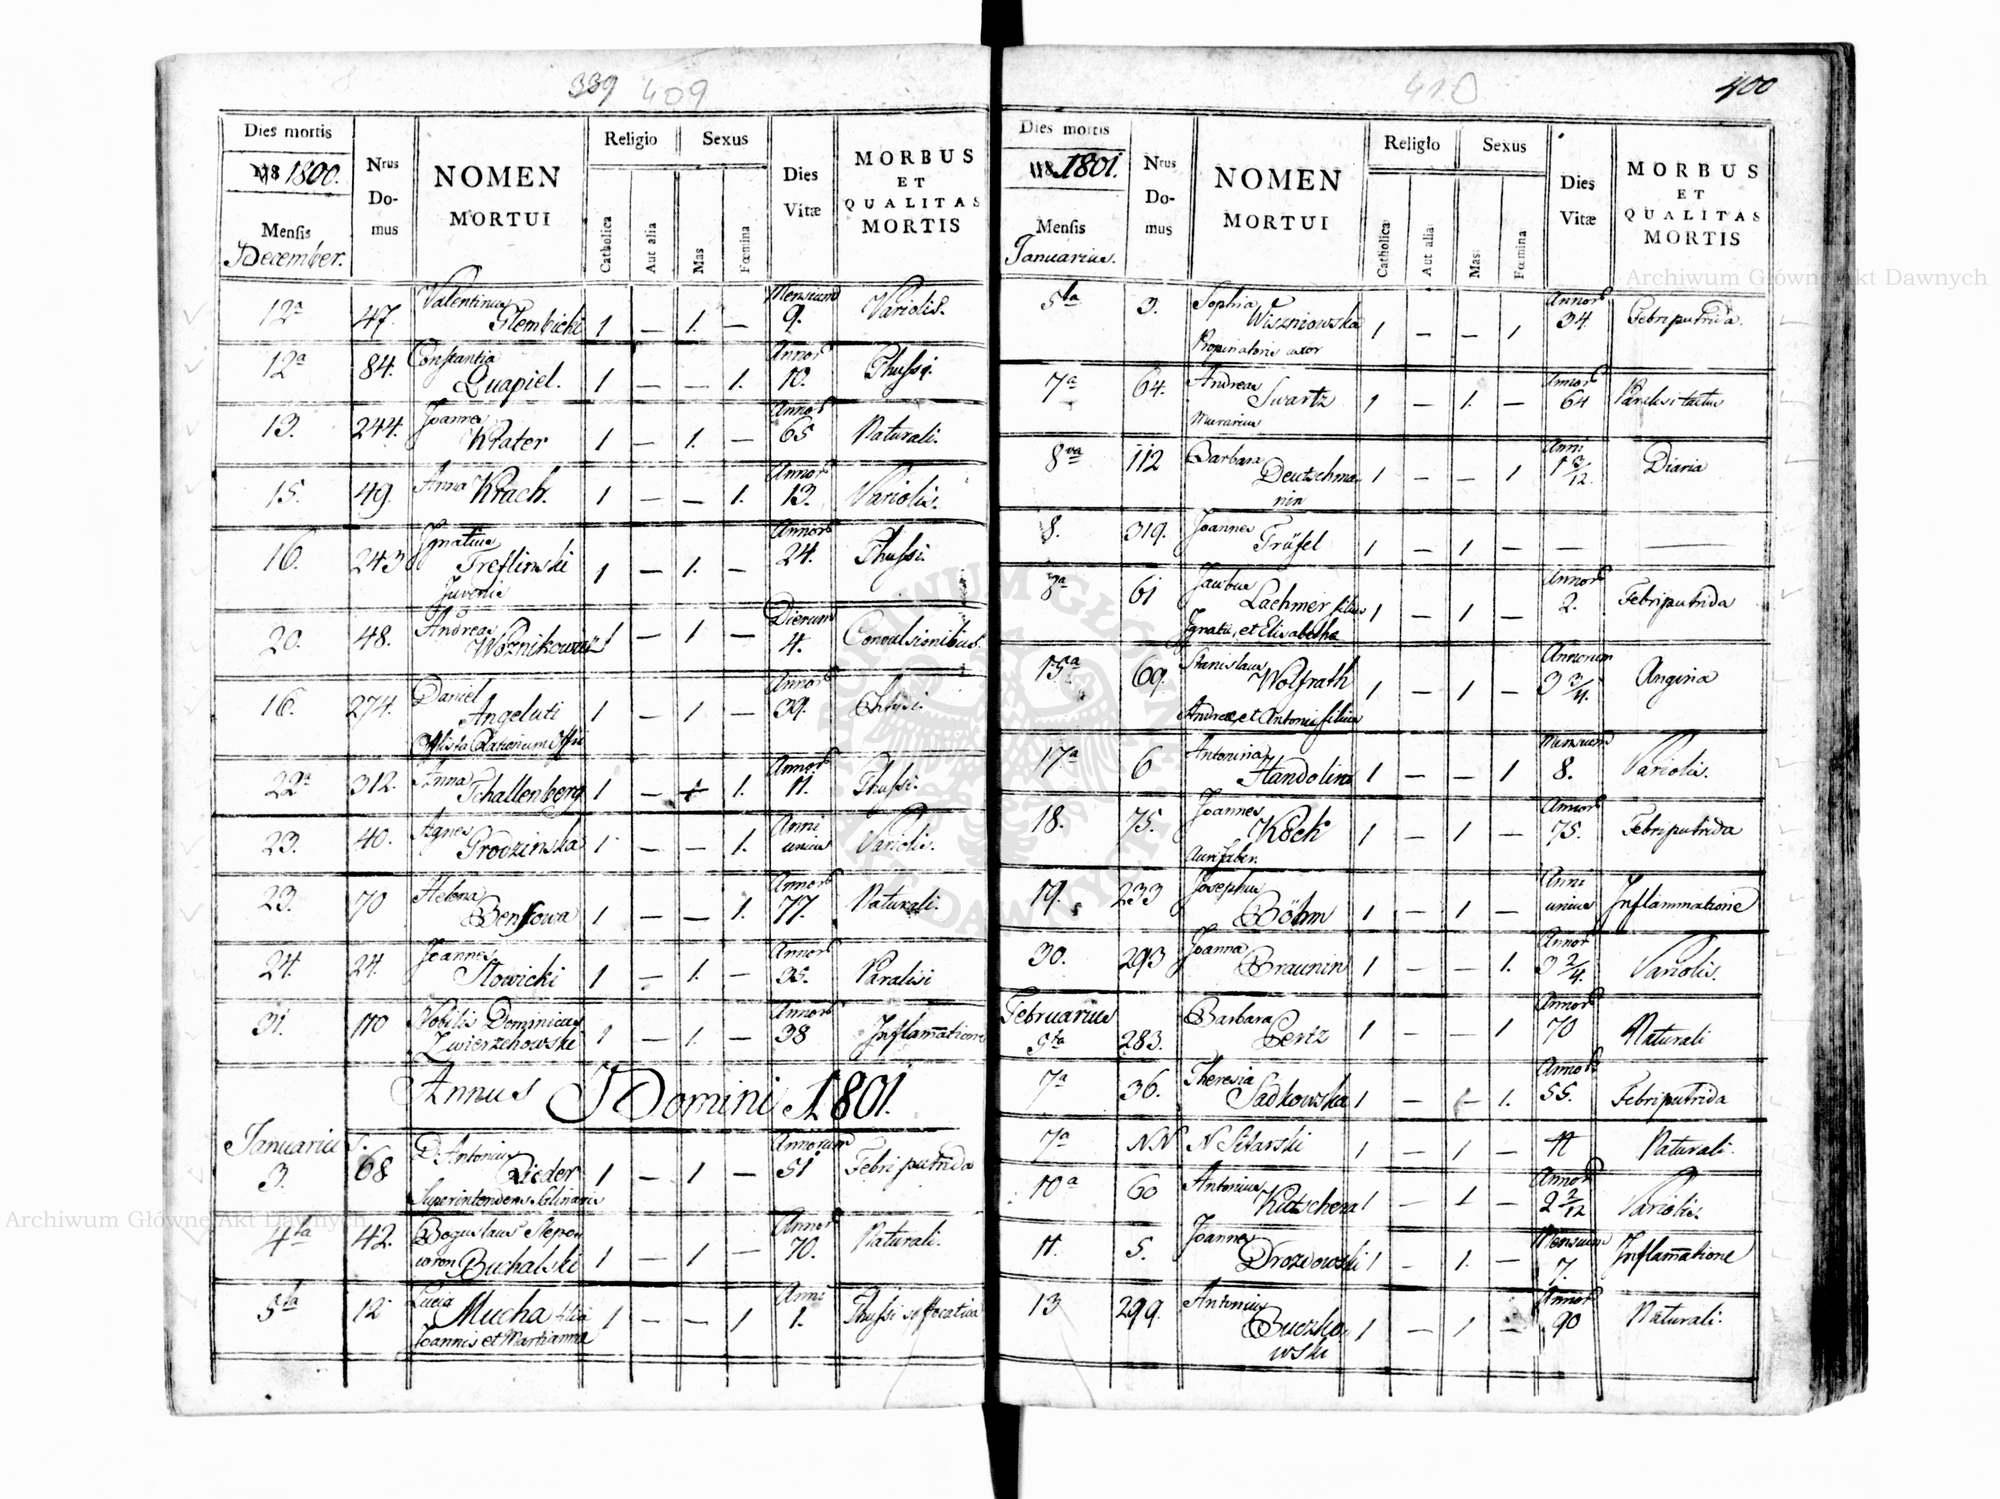 339 409
Dies mortis
178 1800.
Mensis
December.
Nrus
Do-
mus
NOMEN
MORTUI
Religio
Catholica
Aut alia
Sexus
Mas
Fœmina
Dies
Vitæ
MORBUS
ET
QUALITAS
MORTIS
12a 47. Valentinus Glembicki 1 — 1. — Mensium 9. Variolis.
12a 84. Constantia Quapiel. 1 — — 1. Annor 10. Thussi.
13. 244. Joannes Krater 1 — 1. — Annor 65 Naturali.
15. 49. Anna Krach. 1 — — 1. Annor 13. Variolis.
16. 243 Ignatius Treflinski 1 — 1. — Annor 24. Thussi.
Juvenis
20. 48. Andreas Woznikowicz 1 — 1 — Dierum 4. Convulsionibus.
16. 274. Daniel Angeluti 1 — 1 — Annor 39. Thisi.
Rationum Offic
22a 312. Anna Schallenberg 1 — + 1. Annor 11. Thussi.
23. 40. Agnes Grodzinska 1 — — 1. Anni unius Variolis.
23. 70 Helena Benssowa 1 — — 1. Annor 77. Naturali.
24. 24. Joannes Slowicki 1 — 1. — Annor 35. Paralisi
31. 110 Nobilis Dominicus
Zwierzchowski 1 — 1. — Annor 38 Inflamatione
Annus Domini 1801.
Januarius.
3. 68 D. Antonius Rieder 1 — 1 — Annorum 51 Febri putrida
Superintendens Salinaris
4ta 42. Boguslaus Slepo
wron Buchalski 1 — 1 — Annor 70. Naturali.
5ta 12 Lucia Mucha filia 1 — — 1 Anni 1. Thussi suffocativa
Joannis et Marianna
410 400
Dies mortis
178 1801.
Mensis
Januarius.
Nrus
Do-
mus
NOMEN
MORTUI
Religio
Catholica
Aut alia
Sexus
Mas
Fœmina
Dies
Vitæ
MORBUS
ET
QUALITAS
MORTIS
5ta 3. Sophia Wiszniowska 1 — — 1 Annor 34. Febri putrida.
Propinatoris uxor
7a 64. Andreas Swartz 1 — 1. — Annor 64 Paralisi tactus
Murarius
8va 112 Barbara Deutschma 1 — — 1 Anni 1 3/12. Diaria
nin
8. 319. Joannes Früsel 1 — 1 — — —
8a 61 Jacobus Lachmer filius 1 — 1 — Annor 2. Febri putrida
Ignatii, et Elisabetha
15a 69. Stanislaus Wolfrath 1 — 1 — Annorum 3 3/4. Angina
Andrea, et Antonia filius
17a 6 Antonina Handolina 1 — — 1 Mensium 8. Variolis.
18. 75. Joannes Koch 1 — 1 — Annor 75. Febri putrida
Aurifaber.
19. 233 Josephus Böhm 1 — 1 — Anni unius Inflammatione
30. 293 Joanna Braunin 1 — — 1. Annor 3 2/4. Variolis.
Februarius
5ta 283. Barbara Gertz 1 — — 1 Annor 70 Naturali
7a 36. Theresia Sadkowska 1 — — 1. Annor 55. Febri putrida
7a NN N Sitarski 1 — 1 — 11 Naturali.
10a 60 Antonius Kutschera 1 — 1 — Annor 2 2/12 Variolis.
11. 5. Joannes Drozdowski 1 — 1. — Mensium 7. Inflamatione
13 299. Antonius Suczko 1 — 1 — Annor 90 Naturali.
wski
Archiwum Główne Akt Dawnych
Archiwum Główne Akt Dawnych
ARCHIWUM GŁÓWNE AKT DAWNYCH